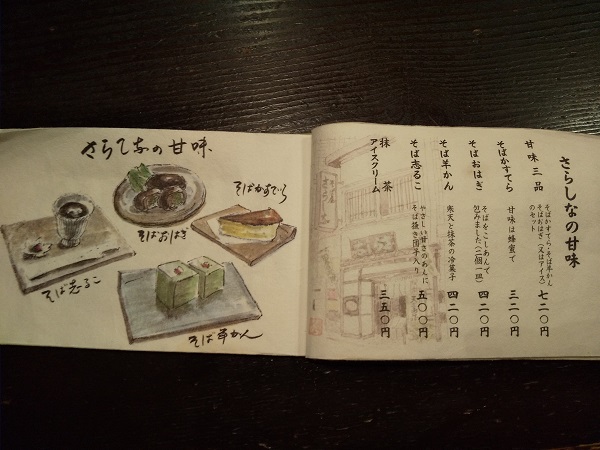 さらしなの甘味
そばおはぎ
そばかすてら
そば志るこ
そば羊かん
さらしなの甘味
甘味三品
そばかすてら・そば羊かん
そばおはぎ（又はアイス）
のセット
七二〇円
そばかすてら
甘味は蜂蜜で
三二〇円
そばおはぎ
そばをこしあんで
包みました（二個一皿）
四二〇円
そば羊かん
寒天と抹茶の冷菓子
四二〇円
そば志るこ
やさしい甘さのあんに
そば掻き団子入り
五〇〇円
抹茶
アイスクリーム
三五〇円